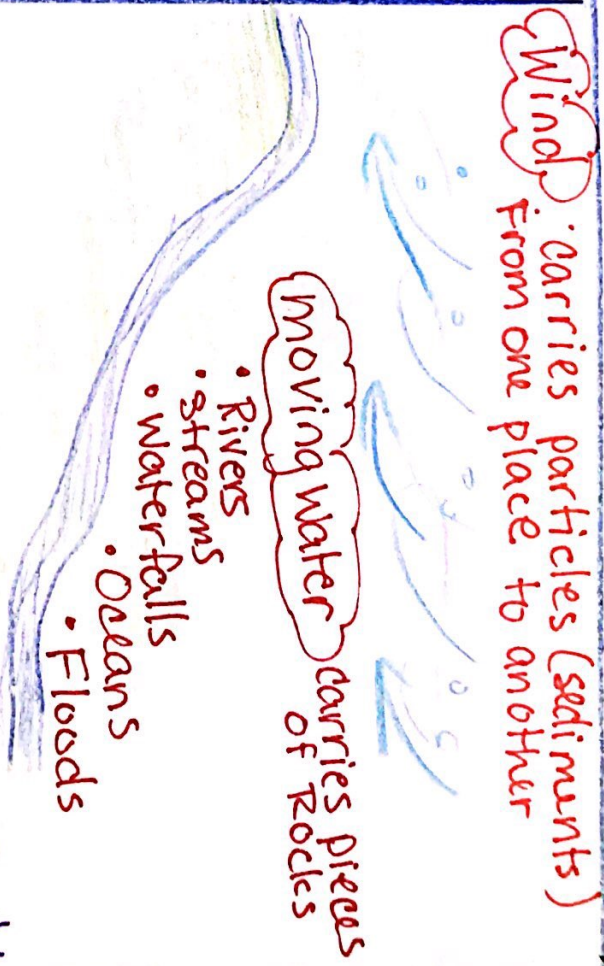 Wind carries particles (sediments)
From one place to another
moving water carries pieces
of Rocks
• Rivers
• streams
• waterfalls
• Oceans
• Floods